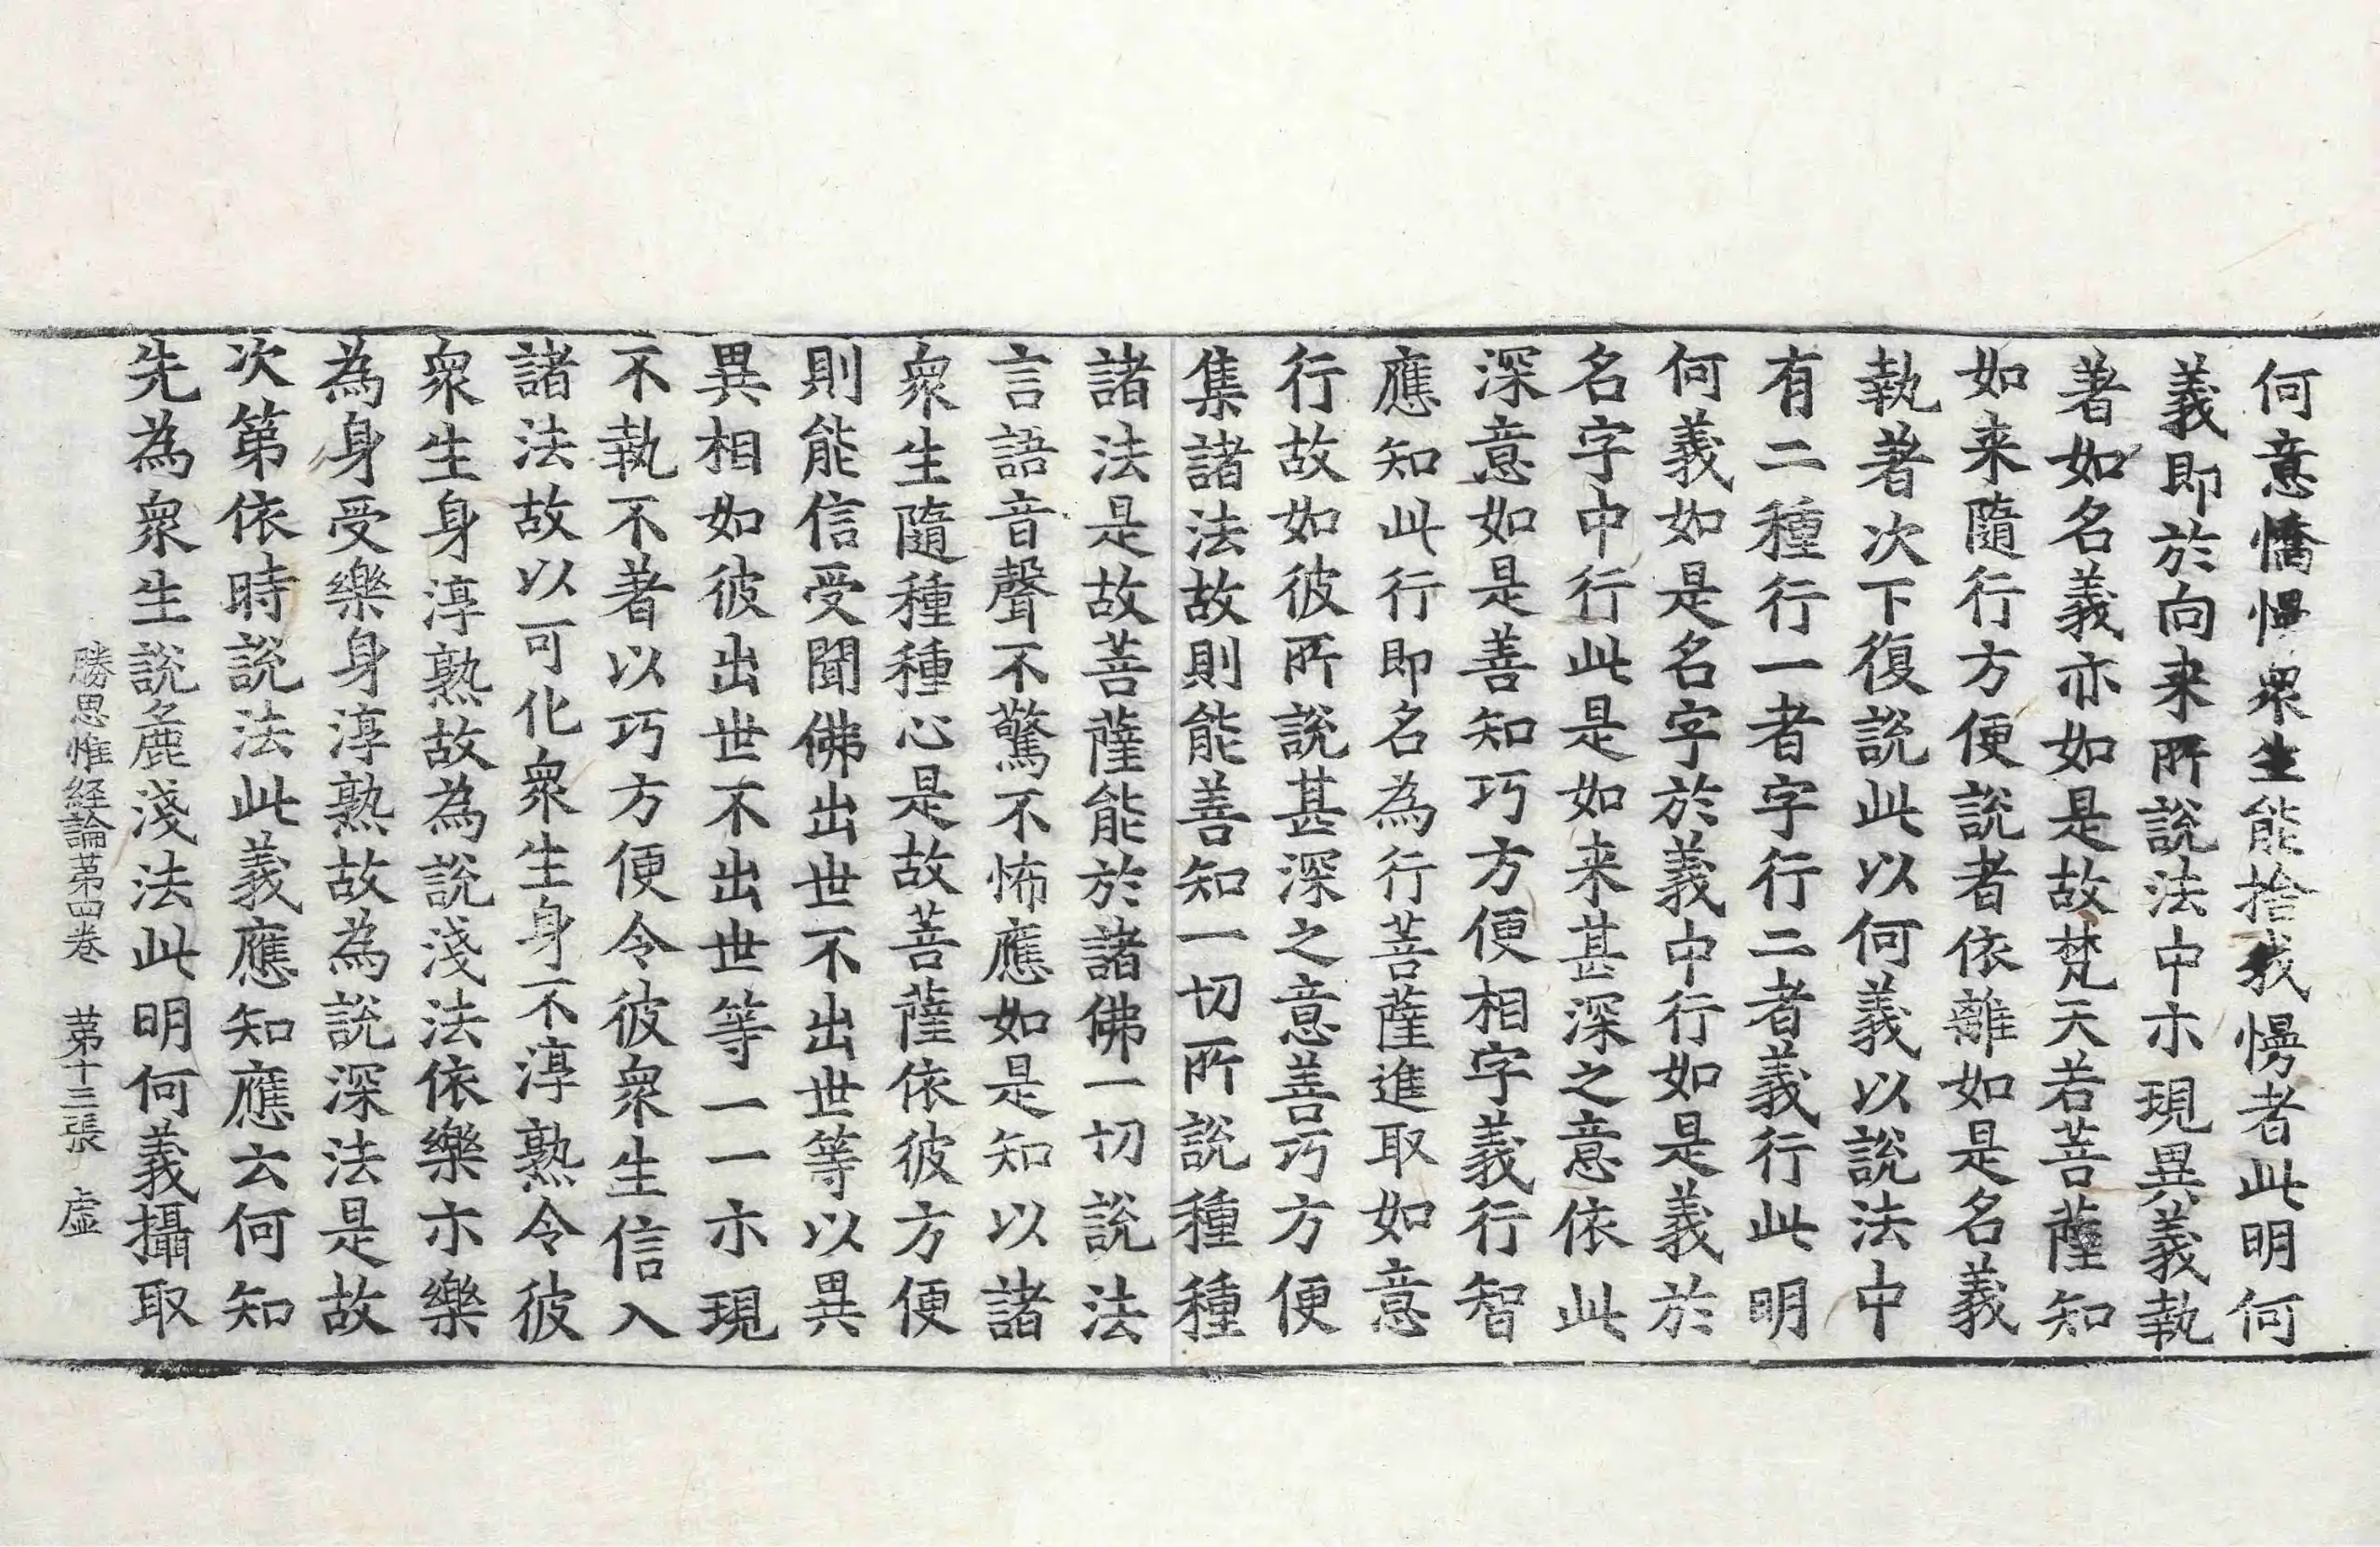 何意憍慢衆生能捨我慢者此明何
義即於向来所說法中示現異義執
著如名義亦如是故梵天若菩薩知
如来隨行方便說者依離如是名義
執著次下復說此以何義以說法中
有二種行一者字行二者義行此明
何義如是名字於義中行如是義於
名字中行此是如来甚深之意依此
深意如是善知巧方便相字義行智
應知此行即名為行菩薩進取如意
行故如彼所說甚深之意善巧方便
集諸法故則能善知一切所說種種
諸法是故菩薩能於諸佛一切說法
言語音聲不驚不怖應如是知以諸
衆生隨種種心是故菩薩依彼方便
則能信受聞佛出世不出世等以異
異相如彼出世不出世等一一示現
不執不著以巧方便令彼衆生信入
諸法故以可化衆生身不淳熟令彼
衆生身淳熟故為說淺法依樂示樂
為身受樂身淳熟故為說深法是故
次第依時說法此義應知應云何知
先為衆生說麁淺法此明何義攝取
勝思惟経論第四卷　第十三張　虛